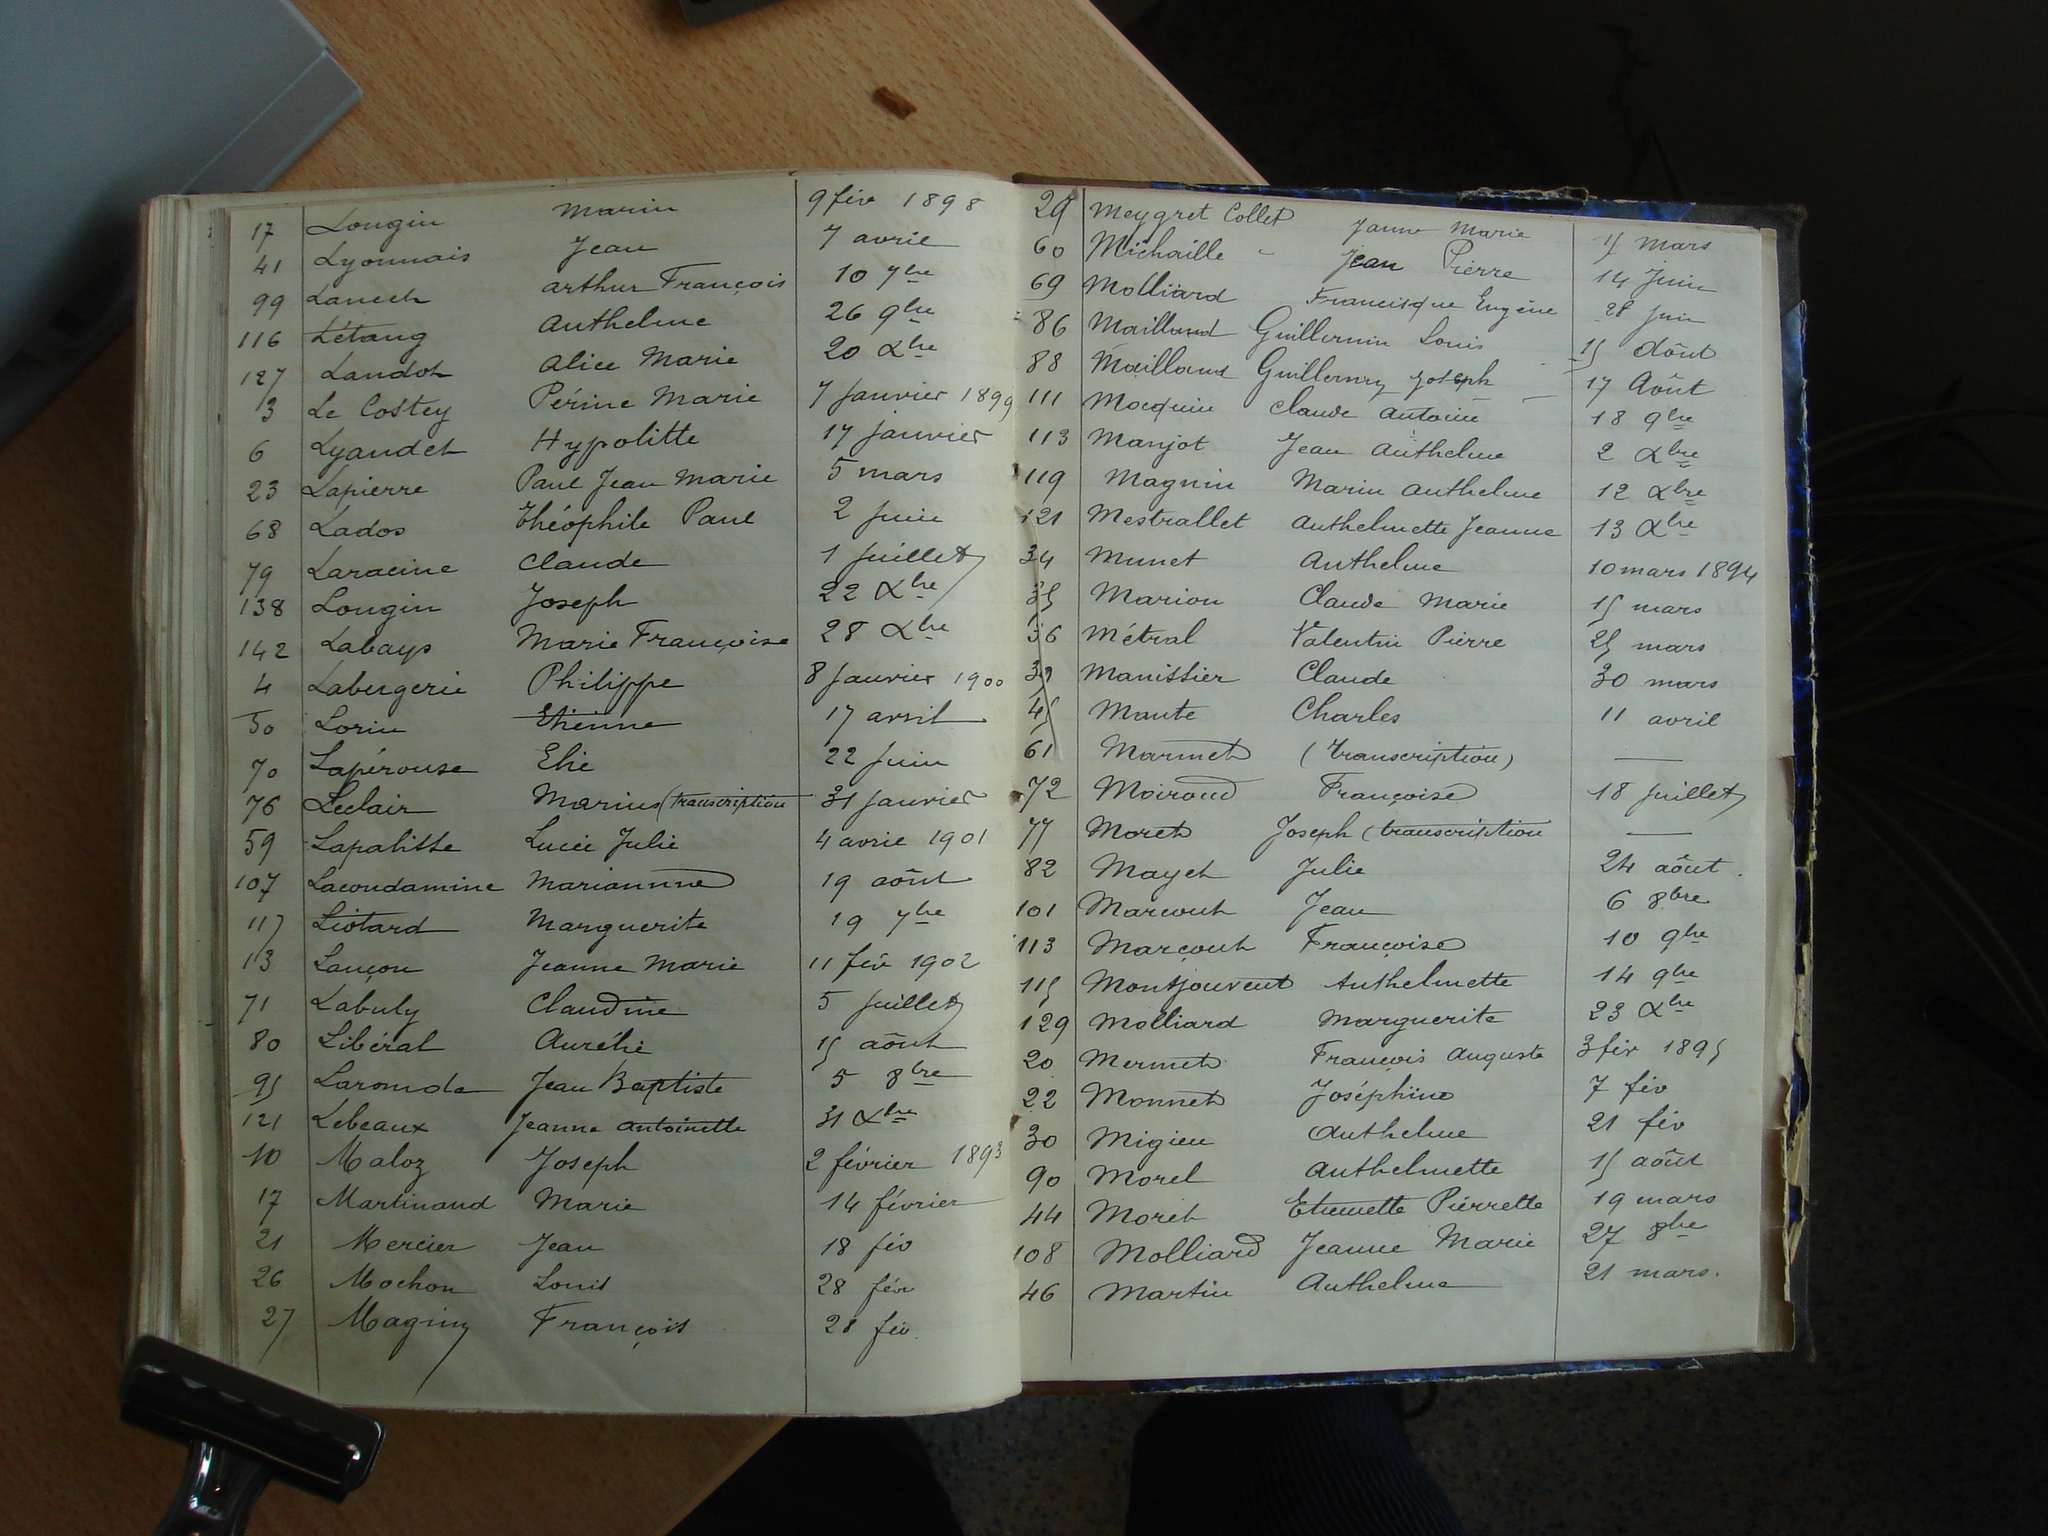 17 Longin Marin 9 fév 1898
41 Lyonnais Jean 7 avril
99 Lanech Arthur François 10 7bre
116 Létang Anthelme 26 9bre
127 Landot Alice Marie 20 Xbre
3 Le Costey Périne Marie 7 Janvier 1899
6 Lyandet Hypolitte 17 janvier
23 Lapierre Paul Jean Marie 5 mars
68 Lados Théophile Paul 2 Juin
79 Laracine Claude 1 Juillet
138 Longin Joseph 22 Xbre
142 Labays Marie Françoise 28 Xbre
4 Labergerie Philippe 8 Janvier 1900
50 Lorin Etienne 17 avril
70 Lapérouse Elie 22 Juin
76 Leclair Marius (transcription 31 Janvier
59 Lapalisse Lucie Julie 4 avril 1901
107 Lacondamine Marianne 19 août
117 Liotard Marguerite 19 7bre
13 Lançon Jeanne Marie 11 fév 1902
71 Labuly Claudine 5 Juillet
80 Libéral Aurélie 15 août
95 Laronde Jean Baptiste 5 8bre
121 Lebeaux Jeanne Antoinette 31 Xbre
10 Maloz Joseph 2 février 1893
17 Martinand Marie 14 février
21 Mercier Jean 18 fév
26 Mochon Louis 28 fév
27 Magnin François 28 fév.
29 Meygret Collet Janne Marie 15 Mars
60 Michaille - Jean Pierre 14 Juin
69 Molliard Francisque Eugène 28 Juin
86 Mailland Guillermin Louis 15 Août
88 Mailland Guillermin Joseph 17 Août
111 Mocquin Claude Antoine 18 9bre
113 Manjot Jean Anthelme 2 Xbre
119 Magnin Marin Anthelme 12 Xbre
121 Mestrallet Anthelmette Jeanne 13 Xbre
34 Munet Anthelme 10 mars 1894
35 Marion Claude Marie 15 mars
36 Métral Valentin Pierre 25 mars
39 Manissier Claude 30 mars
45 Mante Charles 11 avril
61 Marmet (transcription)
72 Moiroud Françoise 18 Juillet
77 Moret Joseph (transcription
82 Mayet Julie 24 août.
101 Marcout Jean 6 8bre
113 Marçout Françoise 10 9bre
115 Montjouvent Anthelmette 14 9bre
129 Molliard Marguerite 23 Xbre
20 Mermet François Auguste 3 fév 1895
22 Monnet Joséphine 7 fév
30 Migieu Anthelme 21 fév
90 Morel Anthelmette 15 août
44 Moret Etiennette Pierrette 19 mars
108 Molliard Jeanne Marie 27 8bre
46 Martin Anthelme 21 mars.